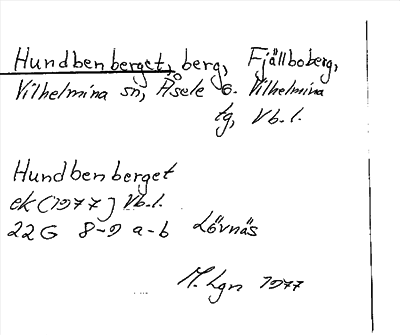 Hundbenberget, berg, Fjällboberg,
Vilhelmina sn, Åsele o. Vilhelmina
tg, Vb.l.
Hundbenberget
ek (1977) Vb.l.
22G 8-9 a-b Lövnäs
M. Lgn 1977